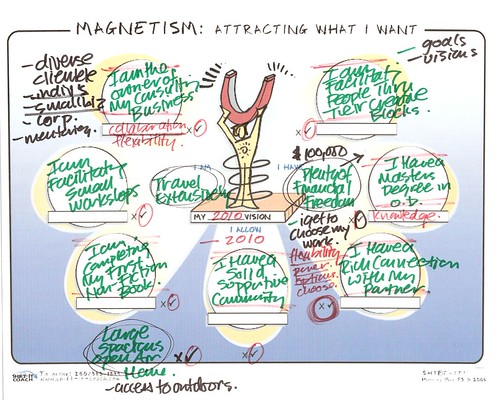 MAGNETISM: ATTRACTING WHAT I WANT
- goals
- visions
- diverse
clientele
- indivs
- small biz
- corp.
- mentoring.
I am the
owner of
my consulting
Business
collaboration
flexibility.
I am
Facilitating
People Thru
Their Creative
Blocks.
I AM
I HAVE
I am
Facilitating
Small
Workshops
Travel
Extensively
$100,000
Plenty of
Financial
Freedom
- i get to
choose my
work.
flexibility
power.
options
choose.
I Have a
Masters
Degree in
O.D.
Knowledge.
MY 2010 VISION
I ALLOW
- 2010
I am
Completing
My First
Non-Fiction
Book.
I Have a
Solid
Supportive
Community
I Have a
Rich Connection
With My
Partner.
Large
Spacious
Open Air
Home.
- access to outdoors.
SHIFT-IT
COACH